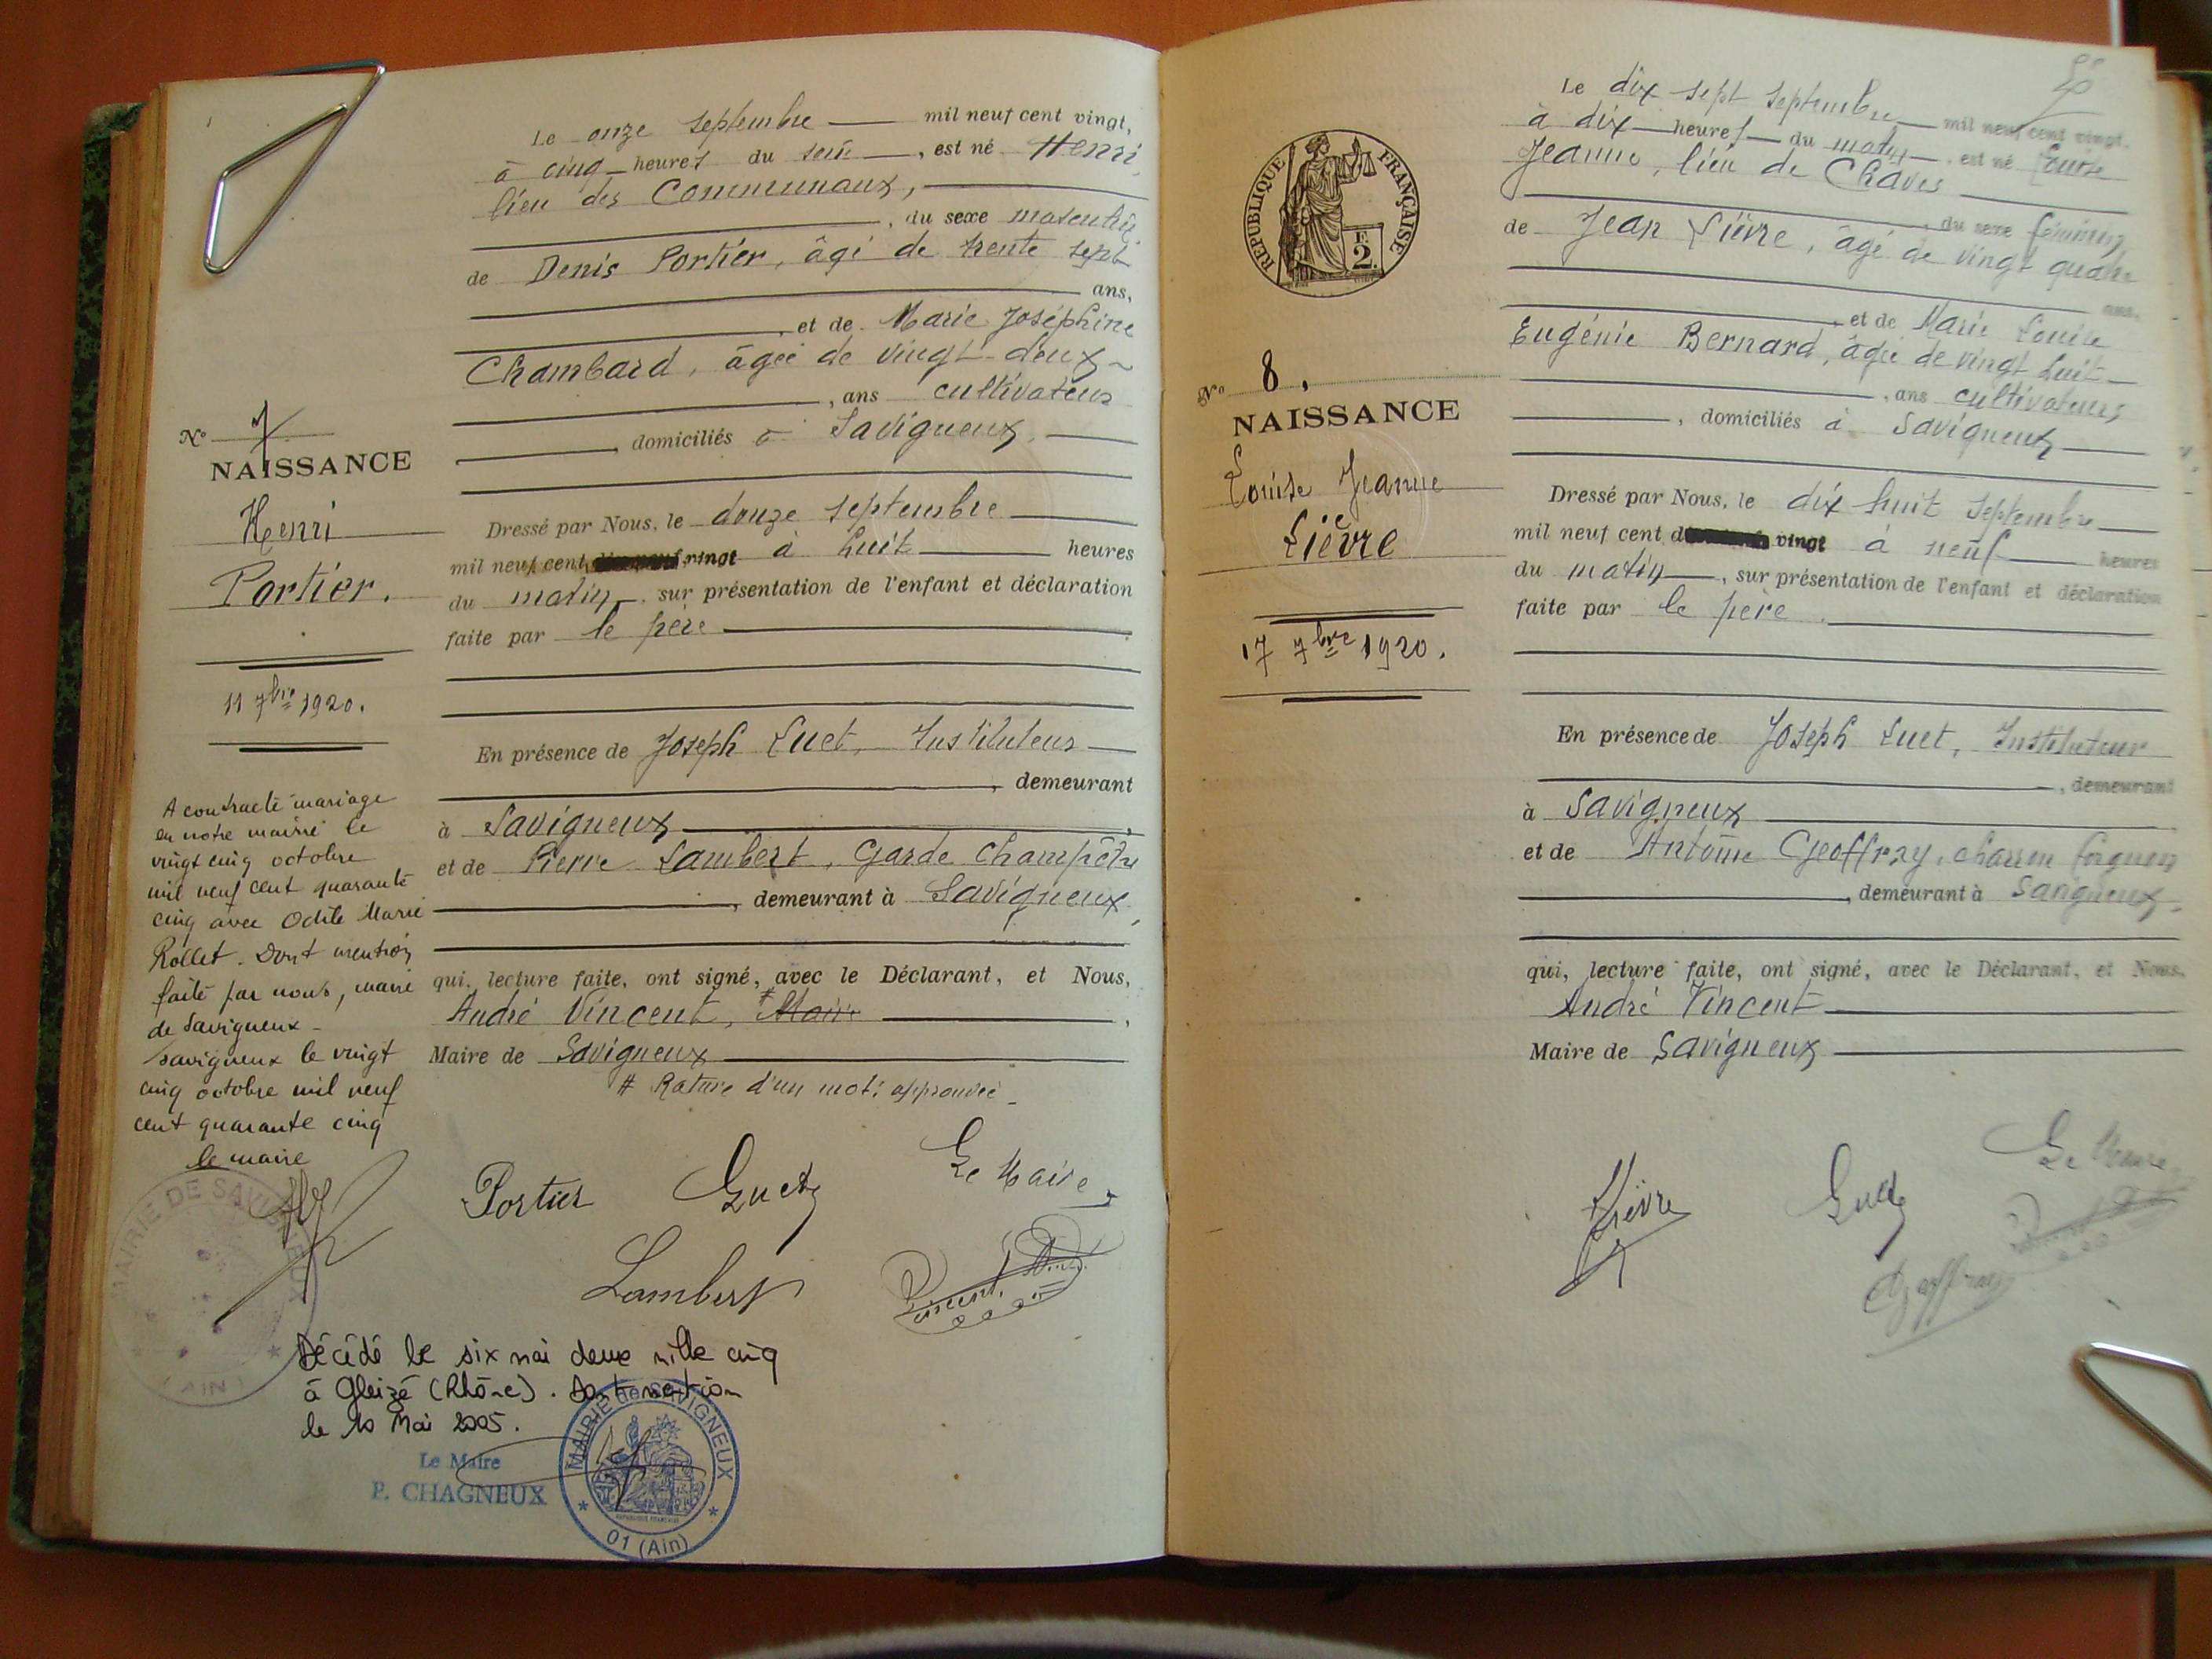 Le onze septembre mil neuf cent vingt,
à cinq heures du soir, est né Henri
lieu des Communaux,
, du sexe masculin
de Denis Portier, âgé de trente sept
ans,
, et de Marie Joséphine
Chambard, âgée de vingt-deux
, ans cultivateurs
, domiciliés à Savigneux.
N° 7
NAISSANCE
Henri
Portier.
11 7bre 1920.
Dressé par Nous, le douze septembre
mil neuf cent vingt à huit heures
du matin, sur présentation de l'enfant et déclaration
faite par le père
En présence de Joseph Luet, Instituteur
, demeurant
à Savigneux
et de Pierre Lambert, Garde Champêtre
, demeurant à Savigneux,
qui, lecture faite, ont signé, avec le Déclarant, et Nous,
André Vincent, # Maire
Maire de Savigneux
# Rature d'un mot: approuvée
A contracté mariage
en notre mairie le
vingt cinq octobre
mil neuf cent quarante
cinq avec Odile Marie
Rollet. Dont mention
faite par nous, maire
de Savigneux -
Savigneux le vingt
cinq octobre mil neuf
cent quarante cinq
le maire
MAIRIE DE SAVIGNEUX
(AIN)
Portier Luet Le Maire,
Lambert Vincent
Décédé le six mai deux mille cinq
à Gleizé (Rhône). Dont mention
le 10 Mai 2005.
Le Maire
P. CHAGNEUX
MAIRIE de SAVIGNEUX
01 (Ain)
Le dix sept septembre mil neuf cent vingt,
à dix heures du matin, est né Louise
Jeanne, lieu de Chaves
, du sexe féminin,
de Jean Lièvre, âgé de vingt quatre
ans,
, et de Marie Louise
Eugénie Bernard, âgée de vingt huit
, ans cultivateurs
, domiciliés à Savigneux
REPUBLIQUE FRANÇAISE
F.
2.
N° 8.
NAISSANCE
Louise Jeanne
Lièvre
17 7bre 1920.
Dressé par Nous, le dix huit septembre
mil neuf cent vingt à neuf heures
du matin, sur présentation de l'enfant et déclaration
faite par le père.
En présence de Joseph Luet, Instituteur
, demeurant
à Savigneux
et de Antoine Geoffray, charron forgeron
, demeurant à Savigneux,
qui, lecture faite, ont signé, avec le Déclarant, et Nous,
André Vincent
Maire de Savigneux
Lièvre Luet Le Maire
Geoffray